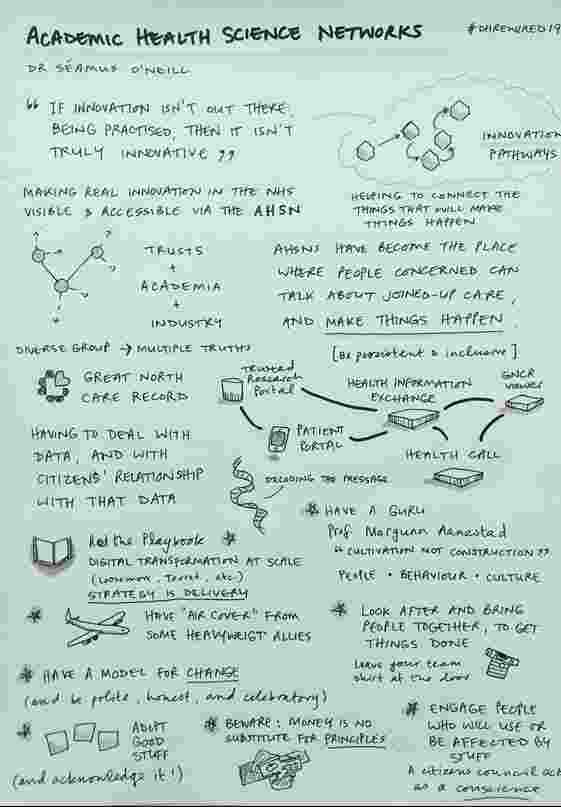 ACADEMIC HEALTH SCIENCE NETWORKS
#DHIREWIRED19
DR SÉAMUS O'NEILL
"IF INNOVATION ISN'T OUT THERE,
BEING PRACTISED, THEN IT ISN'T
TRULY INNOVATIVE"
INNOVATION
PATHWAYS
MAKING REAL INNOVATION IN THE NHS
VISIBLE & ACCESSIBLE VIA THE AHSN
HELPING TO CONNECT THE
THINGS THAT WILL MAKE
THINGS HAPPEN
TRUSTS
+
ACADEMIA
+
INDUSTRY
AHSNS HAVE BECOME THE PLACE
WHERE PEOPLE CONCERNED CAN
TALK ABOUT JOINED-UP CARE,
AND MAKE THINGS HAPPEN.
DIVERSE GROUP → MULTIPLE TRUTHS
[Be persistent & inclusive]
GREAT NORTH
CARE RECORD
Trusted
Research
Portal
HEALTH INFORMATION
EXCHANGE
GNCR
VIEWER
PATIENT
PORTAL
HEALTH CALL
HAVING TO DEAL WITH
DATA, AND WITH
CITIZENS' RELATIONSHIP
WITH THAT DATA
DECODING THE MESSAGE
* HAVE A GURU
Prof. Margunn Aanestad
"CULTIVATION NOT CONSTRUCTION"
PEOPLE • BEHAVIOUR • CULTURE
the Playbook *
DIGITAL TRANSFORMATION AT SCALE
STRATEGY IS DELIVERY
* HAVE "AIR COVER" FROM
SOME HEAVYWEIGHT ALLIES
* LOOK AFTER AND BRING
PEOPLE TOGETHER, TO GET
THINGS DONE
Leave your team
shirt at the door
* HAVE A MODEL FOR CHANGE
(and be polite, honest, and celebratory)
* ADOPT
GOOD
STUFF
(and acknowledge it!)
* BEWARE: MONEY IS NO
SUBSTITUTE FOR PRINCIPLES
* ENGAGE PEOPLE
WHO WILL USE OR
BE AFFECTED BY
STUFF
A citizens council act
as a conscience